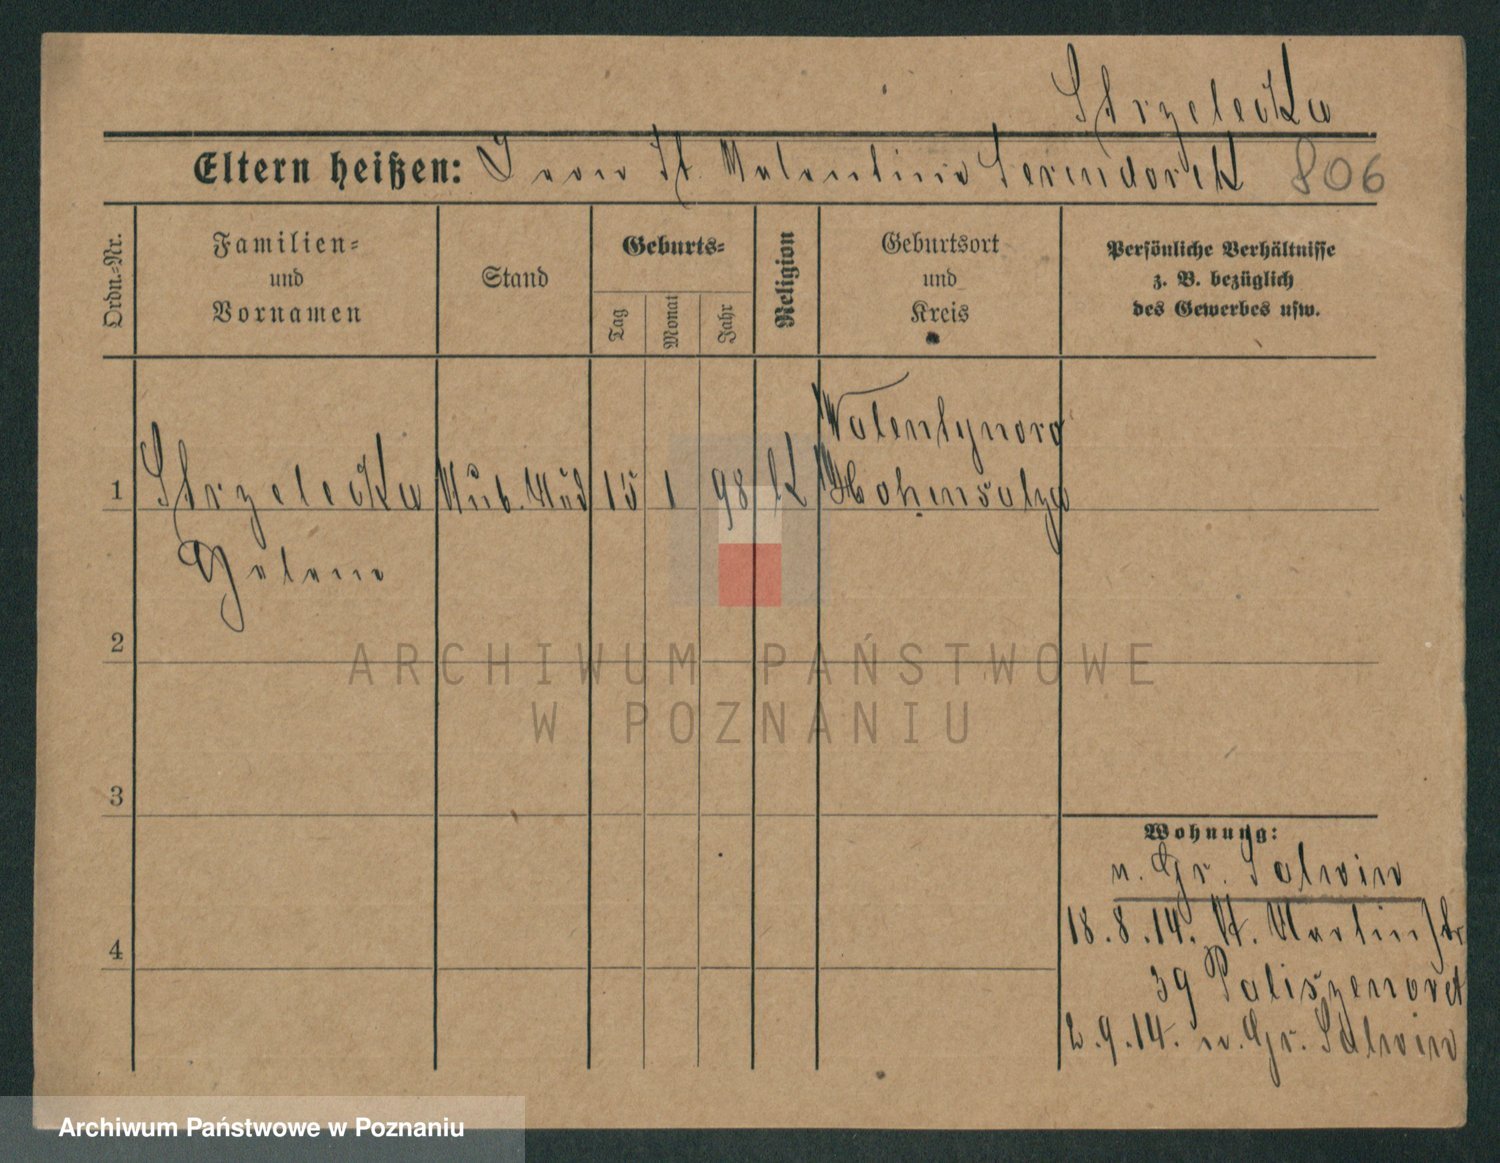 Strzelecka
Eltern heißen: St. Valentine 806
Ordn.-Nr.
Familien-
und
Vornamen
Stand
Geburts-
Tag
Monat
Jahr
Religion
Geburtsort
und
Kreis
Persönliche Verhältnisse
z. B. bezüglich
des Gewerbes usw.
1 Strzelecka 15 1 98 K
Hohensalza
Helene
2
3
4
Wohnung:
18.8.14. St. Martinstr
39
2.9.14. n. Gr.
ARCHIWUM PAŃSTWOWE
W POZNANIU
Archiwum Państwowe w Poznaniu